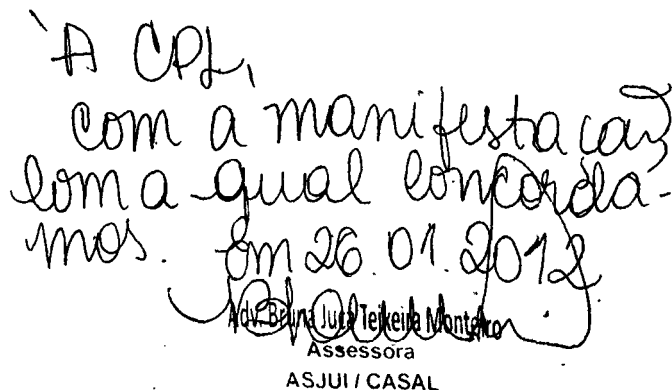 À CPL,
com a manifestação
com a qual concorda-
mos. Em 26.01.2012
Adv. Bruna Jucá Teixeira Monteiro
Assessora
ASJUI / CASAL